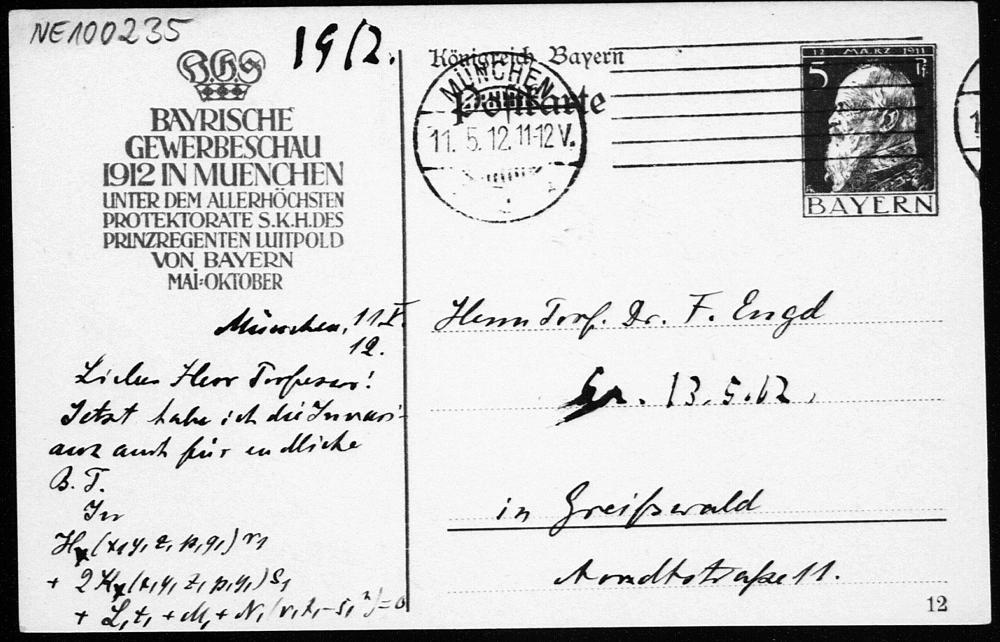 NE100235
1912.
B.G.S
BAYRISCHE
GEWERBESCHAU
1912 IN MUENCHEN
UNTER DEM ALLERHÖCHSTEN
PROTEKTORATE S.K.H.DES
PRINZREGENTEN LUITPOLD
VON BAYERN
MAI=OKTOBER
München, 11 V.
12.
Lieber Herr Professor!
Jetzt habe ich die Invari-
anz auch für endliche
B. T.
In
+ L₁t₁ + M₁ + N₁(r₁t₁-s₁²)=0
Königreich Bayern
Postkarte
MÜNCHEN
11. 5. 12. 11-12 V.
12 MÄRZ 1911
5 Pf
BAYERN
Herrn Prof. Dr. F. Engel
Gr. 13.5.12.
in Greifswald
Arndtstraße 11.
12